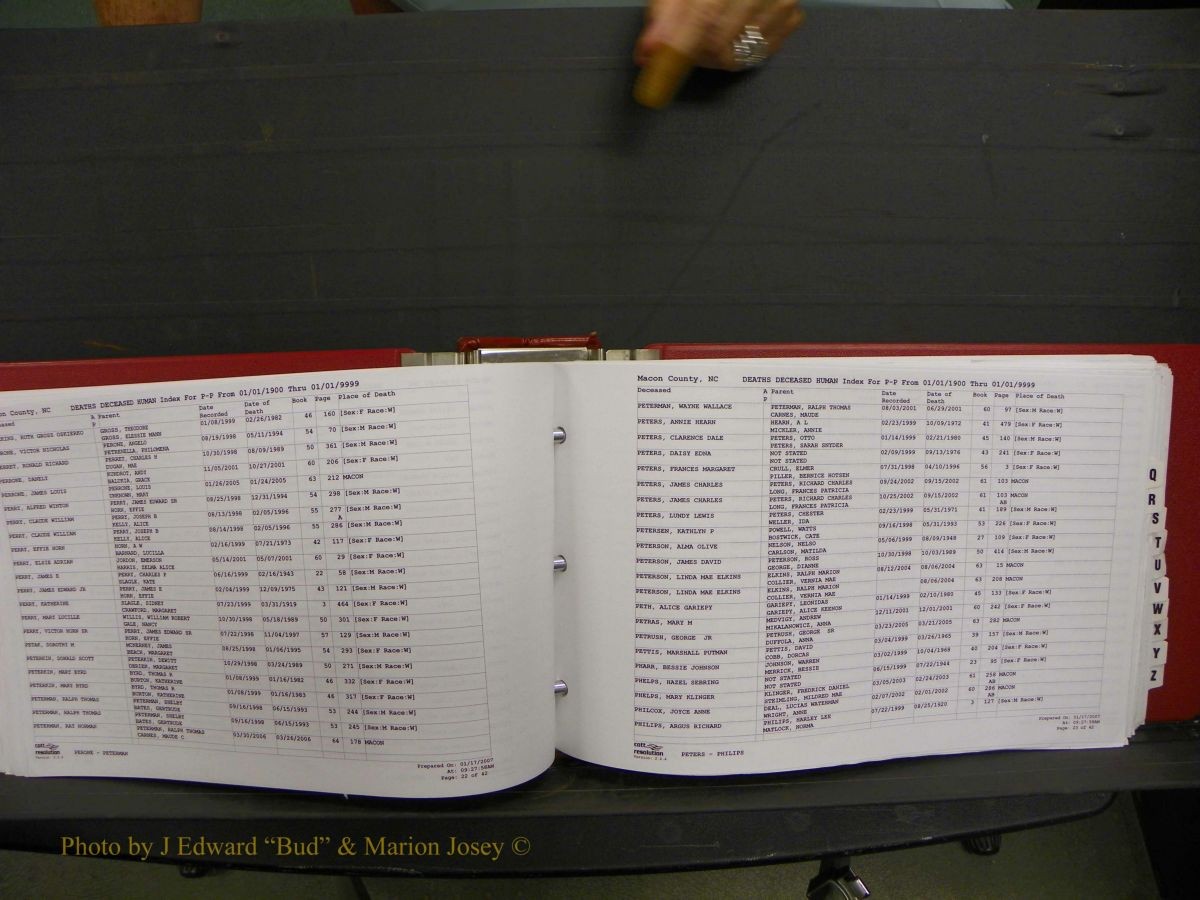 on County, NC DEATHS DECEASED HUMAN Index For P-P From 01/01/1900 Thru 01/01/9999
eased A Parent Date Recorded Date of Death Book Page Place of Death
P
KINS, RUTH GROSS OSKIERKO GROSS, THEODORE 01/08/1999 02/26/1982 46 160 [Sex:F Race:W]
GROSS, ELESSIE MANN
RONE, VICTOR NICHOLAS PERONE, ANGELO 08/19/1998 05/11/1994 54 70 [Sex:M Race:W]
PETRENELLA, PHILOMENA
ERRET, RONALD RICHARD PERRET, CHARLES H 10/30/1998 08/09/1989 50 361 [Sex:M Race:W]
DUGAN, MAE
PERRONE, DANELI 11/05/2001 10/27/2001 60 206 [Sex:F Race:W]
BALUKIA, GRACE
PERRONE, JAMES LOUIS PERRONE, LOUIS 01/26/2005 01/24/2005 63 212 MACON
UNKNOWN, MARY
PERRY, ALFRED WINTON PERRY, JAMES EDWARD SR 08/25/1998 12/31/1994 54 298 [Sex:M Race:W]
HORN, EFFIE
PERRY, CLAUDE WILLIAM PERRY, JOSEPH B 08/13/1998 02/05/1996 55 277 [Sex:M Race:W]
KELLY, ALICE A
PERRY, CLAUDE WILLIAM PERRY, JOSEPH B 08/14/1998 02/05/1996 55 286 [Sex:M Race:W]
KELLY, ALICE
PERRY, EFFIE HORN HORN, A W 02/16/1999 07/21/1973 42 117 [Sex:F Race:W]
BARNARD, LUCILLA
PERRY, ELSIE ADRIAN JORDON, EMERSON 05/14/2001 05/07/2001 60 29 [Sex:F Race:W]
HARRIS, ZELMA ALICE
PERRY, JAMES E PERRY, CHARLES P 06/16/1999 02/16/1943 22 58 [Sex:M Race:W]
SLAGLE, KATE
PERRY, JAMES EDWARD JR PERRY, JAMES E 02/04/1999 12/09/1975 43 121 [Sex:M Race:W]
HORN, EFFIE
PERRY, KATHERINE SLAGLE, SIDNEY 07/23/1999 03/31/1919 3 464 [Sex:F Race:W]
CRAWFORD, MARGARET
PERRY, MARY LUCILLE WILLIS, WILLIAM ROBERT 10/30/1998 05/18/1989 50 301 [Sex:F Race:W]
GALE, NANCY
PERRY, VICTOR HORN SR PERRY, JAMES EDWARD SR 07/22/1998 11/04/1997 57 129 [Sex:M Race:W]
HORN, EFFIE
PETAK, DOROTHY M MCNERNEY, JAMES 08/25/1998 01/06/1995 54 293 [Sex:F Race:W]
BEACH, MARGARET
PETERKIN, DONALD SCOTT PETERKIN, DEWITT 10/29/1998 03/24/1989 50 271 [Sex:M Race:W]
DERIER, MARGARET
PETERKIN, MARY BYRD BYRD, THOMAS R 01/08/1999 01/16/1982 46 332 [Sex:F Race:W]
BURTON, KATHERINE
PETERKIN, MARY BYRD BYRD, THOMAS R 01/08/1999 01/16/1983 46 317 [Sex:F Race:W]
BURTON, KATHERINE
PETERMAN, RALPH THOMAS PETERMAN, SHELBY 09/16/1998 06/15/1993 53 244 [Sex:M Race:W]
BATES, GERTRUDE
PETERMAN, RALPH THOMAS PETERMAN, SHELBY 09/16/1998 06/15/1993 53 245 [Sex:M Race:W]
BATES, GERTRUDE
PETERMAN, RAY NORMAN PETERMAN, RALPH THOMAS 03/30/2006 03/26/2006 64 178 MACON
CARNES, MAUDE C
cott resolution
Version: 2.2.4
PERONE - PETERMAN
Prepared On: 01/17/2007
At: 09:27:58AM
Page: 22 of 42
Macon County, NC DEATHS DECEASED HUMAN Index For P-P From 01/01/1900 Thru 01/01/9999
Deceased A Parent Date Recorded Date of Death Book Page Place of Death
P
PETERMAN, WAYNE WALLACE PETERMAN, RALPH THOMAS 08/03/2001 06/29/2001 60 97 [Sex:M Race:W]
CARNES, MAUDE
PETERS, ANNIE HEARN HEARN, A L 02/23/1999 10/09/1972 41 479 [Sex:F Race:W]
MICKLER, ANNIE
PETERS, CLARENCE DALE PETERS, OTTO 01/14/1999 02/21/1980 45 140 [Sex:M Race:W]
PETERS, SARAH SNYDER
PETERS, DAISY EDNA NOT STATED 02/09/1999 09/13/1976 43 241 [Sex:F Race:W]
NOT STATED
PETERS, FRANCES MARGARET CRULL, ELMER 07/31/1998 04/10/1996 56 3 [Sex:F Race:W]
PILLER, BERNICE HOTSEN
PETERS, JAMES CHARLES PETERS, RICHARD CHARLES 09/24/2002 09/15/2002 61 103 MACON
LONG, FRANCES PATRICIA
PETERS, JAMES CHARLES PETERS, RICHARD CHARLES 10/25/2002 09/15/2002 61 103 MACON
LONG, FRANCES PATRICIA AB
PETERS, LUNDY LEWIS PETERS, CHESTER 02/23/1999 05/31/1971 41 189 [Sex:M Race:W]
WELLER, IDA
PETERSEN, KATHLYN P POWELL, WATTS 09/16/1998 05/31/1993 53 226 [Sex:F Race:W]
BOSTWICK, CATE
PETERSON, ALMA OLIVE NELSON, NELSO 05/06/1999 08/09/1948 27 109 [Sex:F Race:W]
CARLSON, MATILDA
PETERSON, JAMES DAVID PETERSON, ROSS 10/30/1998 10/03/1989 50 414 [Sex:M Race:W]
GEORGE, DIANNE
PETERSON, LINDA MAE ELKINS ELKINS, RALPH MARION 08/12/2004 08/06/2004 63 15 MACON
COLLIER, VERNIA MAE
PETERSON, LINDA MAE ELKINS ELKINS, RALPH MARION 08/06/2004 63 208 MACON
COLLIER, VERNIA MAE
PETH, ALICE GARIEPY GARIEPY, LEONIDAS 01/14/1999 02/10/1980 45 133 [Sex:F Race:W]
GARIEPY, ALICE KEENON
PETRAS, MARY M MEDVIGY, ANDREW 12/11/2001 12/01/2001 60 242 [Sex:F Race:W]
MIKALANOWICZ, ANNA
PETRUSH, GEORGE JR PETRUSH, GEORGE SR 03/23/2005 03/21/2005 63 282 MACON
DUFFOLA, ANNA
PETTIS, MARSHALL PUTMAN PETTIS, DAVID 03/04/1999 03/26/1965 39 157 [Sex:M Race:W]
COBB, DORCAS
PHARR, BESSIE JOHNSON JOHNSON, WARREN 03/02/1999 10/04/1968 40 204 [Sex:F Race:W]
MERRICK, BESSIE
PHELPS, HAZEL SEBRING NOT STATED 06/15/1999 07/22/1944 23 95 [Sex:F Race:W]
NOT STATED
PHELPS, MARY KLINGER KLINGER, FREDRICK DANIEL 03/05/2003 02/24/2003 61 258 MACON
STRIMLING, MILDRED MAE AB
PHILCOX, JOYCE ANNE DEAL, LUCIAS WATERMAN 02/07/2002 02/01/2002 60 286 MACON
WRIGHT, ANNE AB
PHILIPS, ARGUS RICHARD PHILIPS, HARLEY LEE 07/22/1999 08/25/1920 3 127 [Sex:M Race:W]
MATLOCK, NORMA
cott resolution
Version: 2.2.4
PETERS - PHILIPS
Prepared On: 01/17/2007
At: 09:27:58AM
Page: 23 of 42
Q
R
S
T
U
V
W
X
Y
Z
Photo by J Edward “Bud” & Marion Josey ©